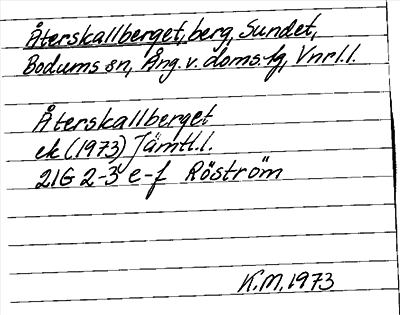 Återskallberget, berg, Sundet,
Bodums sn, Ång. v. doms-g, Vnrl.l.
Återskallberget
ek (1973) Jämtl.l.
21G 2-3 e-f Röström
K.M. 1973